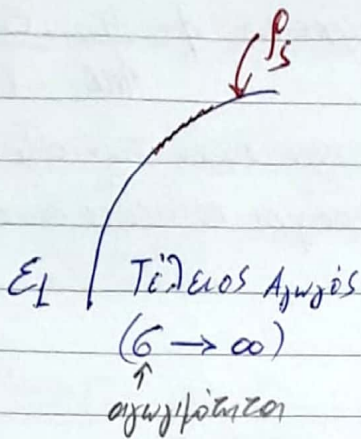 ρₛ
ε₁ Τέλειος Αγωγός
(σ → ∞)
↑
αγωγιμότητα